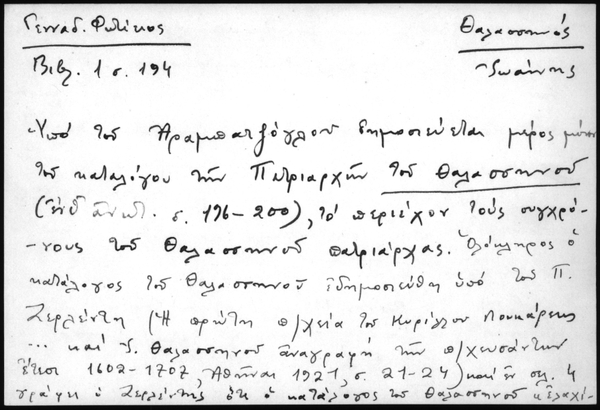 Γενναδ. Φωτίειος Θαλασσηνός
Βιβλ. 1 σ. 194 Ἰωάννης
Ὑπό τοῦ Ἀραμπατζόγλου δημοσιεύεται μέρος μόνον
τοῦ καταλόγου τῶν Πατριαρχῶν τοῦ Θαλασσηνοῦ
(ἔνθ' ἀνωτ. σ. 196-200), τό περιέχον τούς συγχρό-
-νους τοῦ Θαλασσηνοῦ πατριάρχας. Ὁλόκληρος ὁ
κατάλογος τοῦ Θαλασσηνοῦ ἐδημοσιεύθη ὑπό τοῦ Π.
Ζερλέντη (Ἡ πρώτη π/χεία τοῦ Κυρίλλου Λουκάρεως
... καί Ἰ. Θαλασσηνοῦ ἀναγραφή τῶν π/χευσάντων
ἔτεσι 1602-1707, Ἀθῆναι 1921, σ. 21-24) καί ἐν σελ. 4
γράφει ὁ Ζερλέντης ὅτι ὁ κατάλογος τοῦ Θαλασσηνοῦ